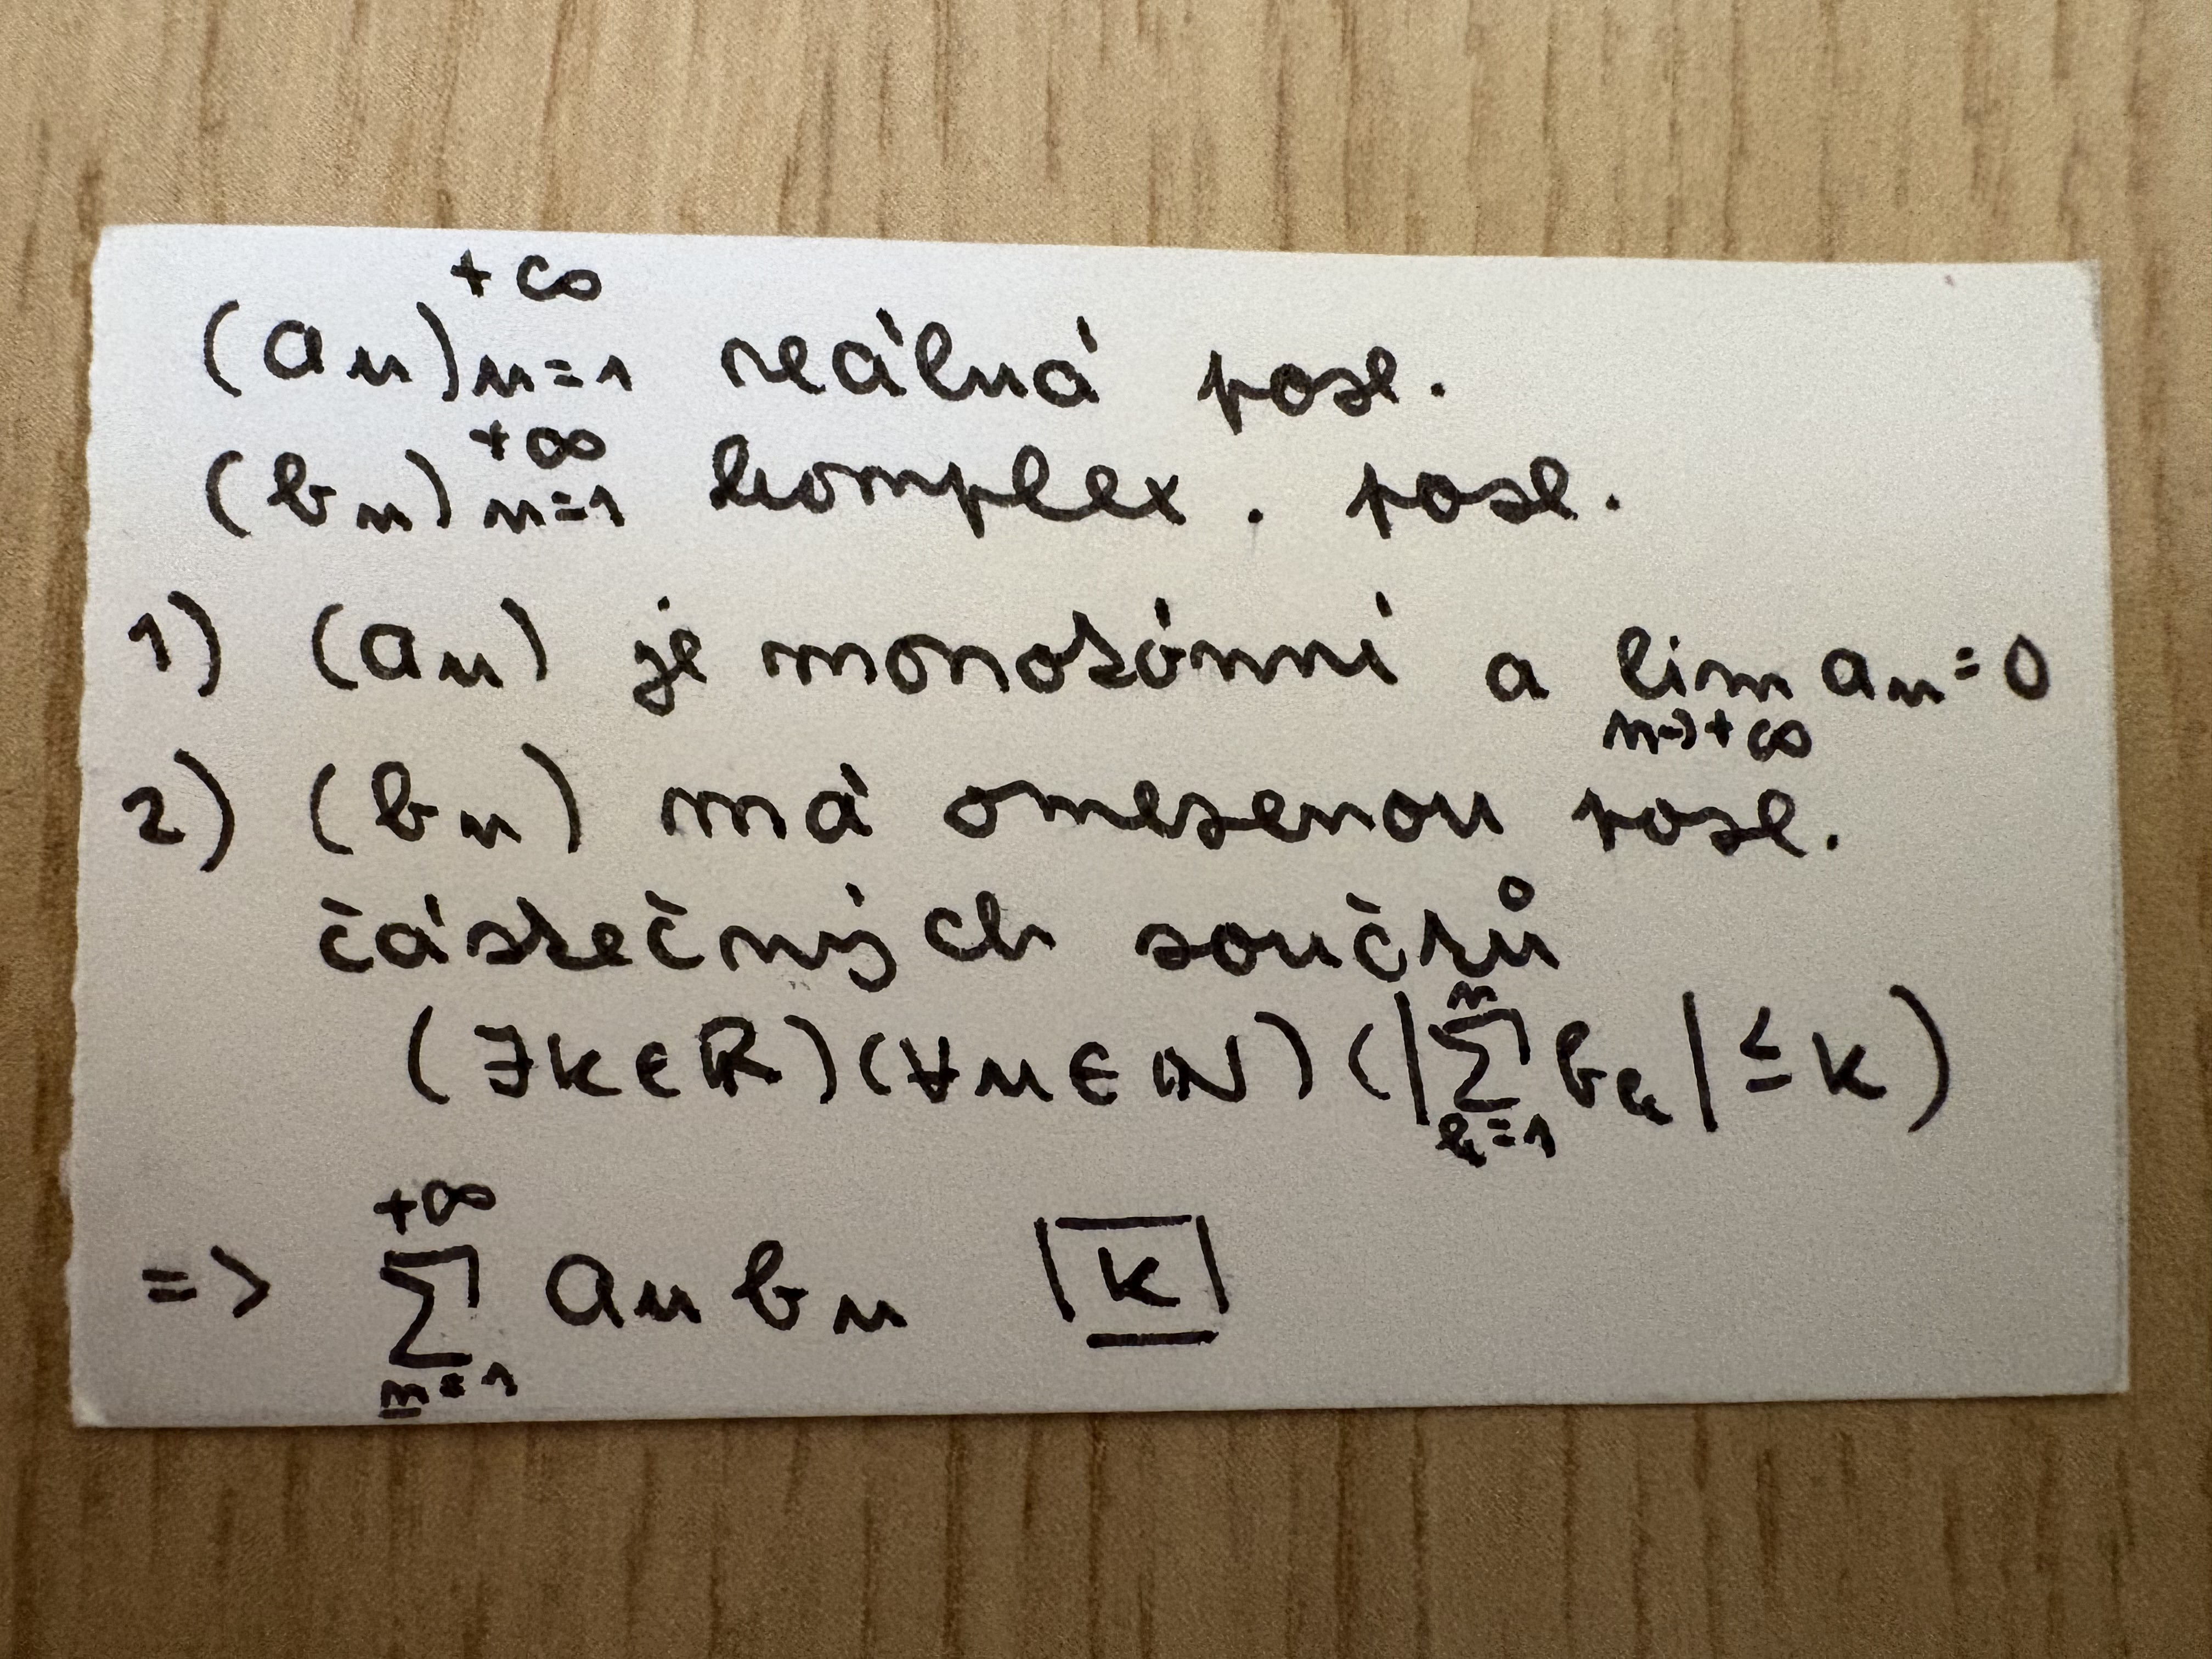 (aₙ)ₙ₌₁^{+∞} reálná posl.
(bₙ)ₙ₌₁^{+∞} komplex. posl.
1) (aₙ) je monotónní a lim_{n→+∞} aₙ = 0
2) (bₙ) má omezenou posl.
částečných součtů
(∃K∈ℝ)(∀n∈ℕ)(|∑_{k=1}^{n} bₖ| ≤ K)
=> ∑_{n=1}^{+∞} aₙ bₙ K